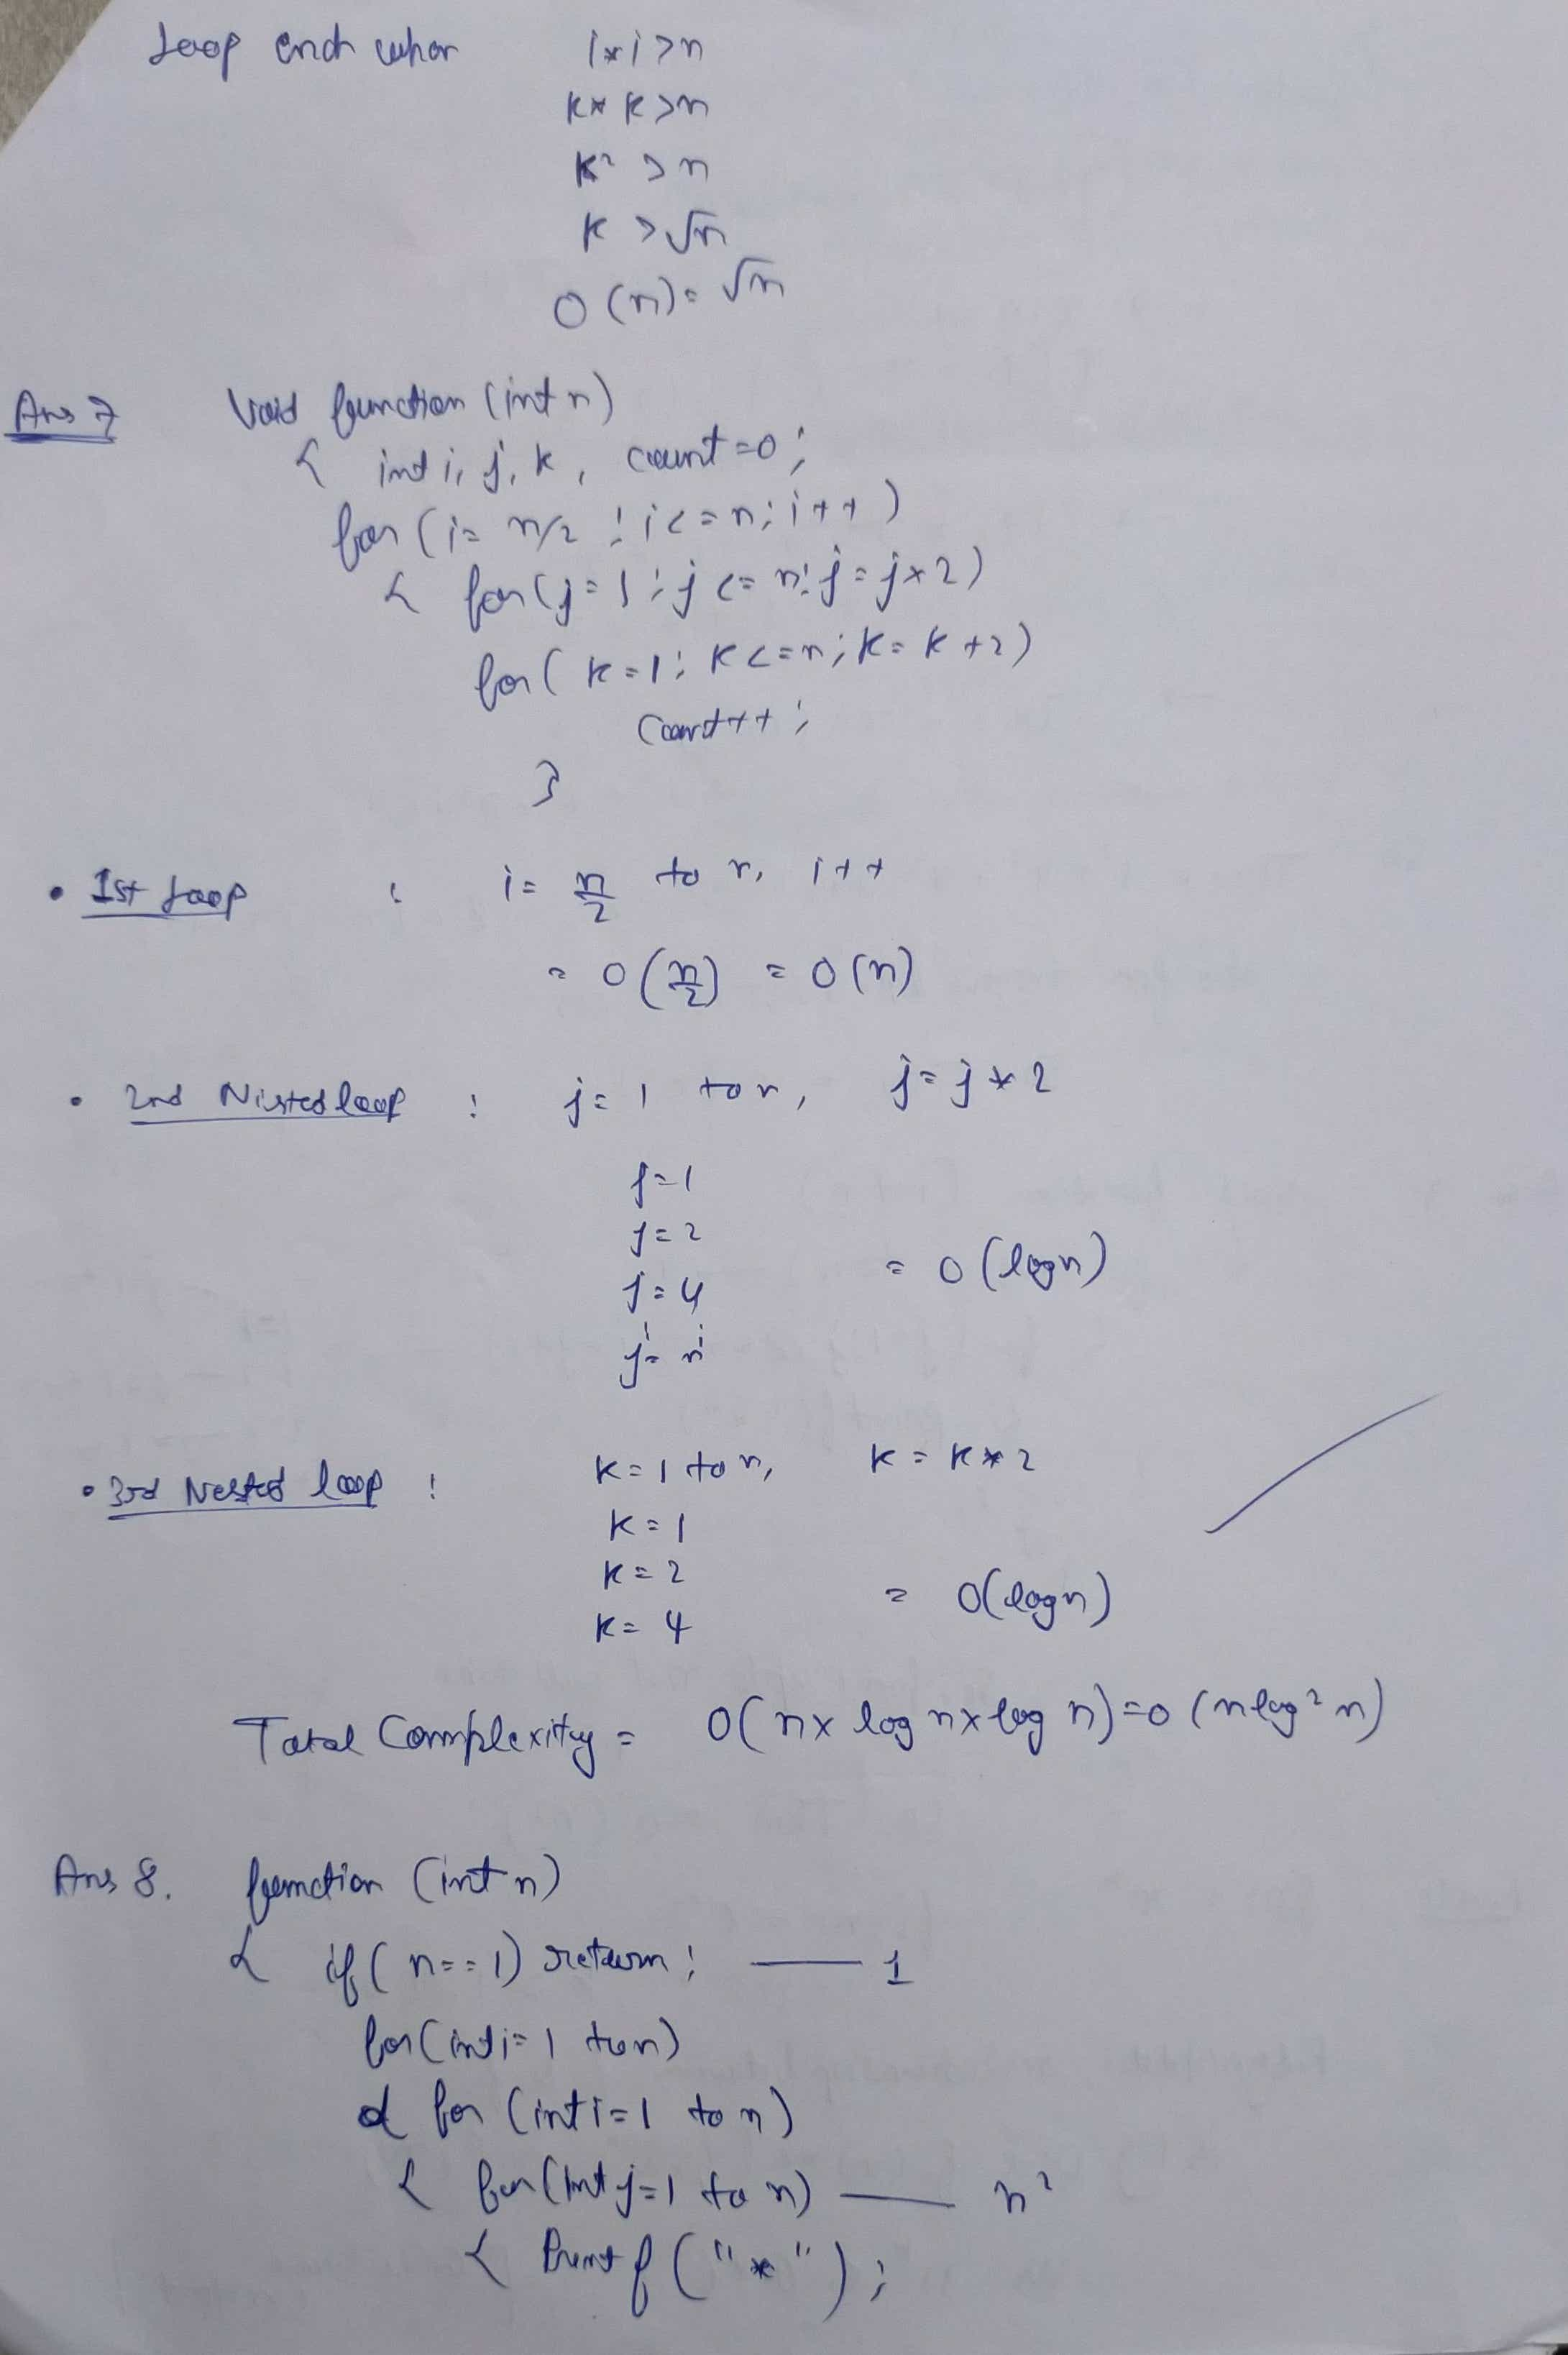 Loop end when i*i>n
k*k>n
k² >n
k >√n
O(n)=√n
Ans 7 Void function (int n)
{ int i, j, k, count=0;
for (i= n/2 ; i<=n; i++)
{ for(j=1; j<=n; j=j*2)
for( k=1; k<=n; k=k+2)
count++;
}
• 1st Loop : i= n/2 to n, i++
= O(n/2) = O(n)
• 2nd Nisted loop : j=1 to n, j=j*2
j=1
j=2
j=4 = O(logn)
j=n
• 3rd Nested loop : k=1 to n, k=k*2
k=1
k=2
k=4 = O(logn)
Total Complexity = O(n x log n x log n)=O(nlog²n)
Ans 8. function (int n)
{ if( n==1) return; — 1
for(int i=1 to n)
{ for (int i=1 to n)
{ for(Int j=1 to n) — n²
{ Printf("*");